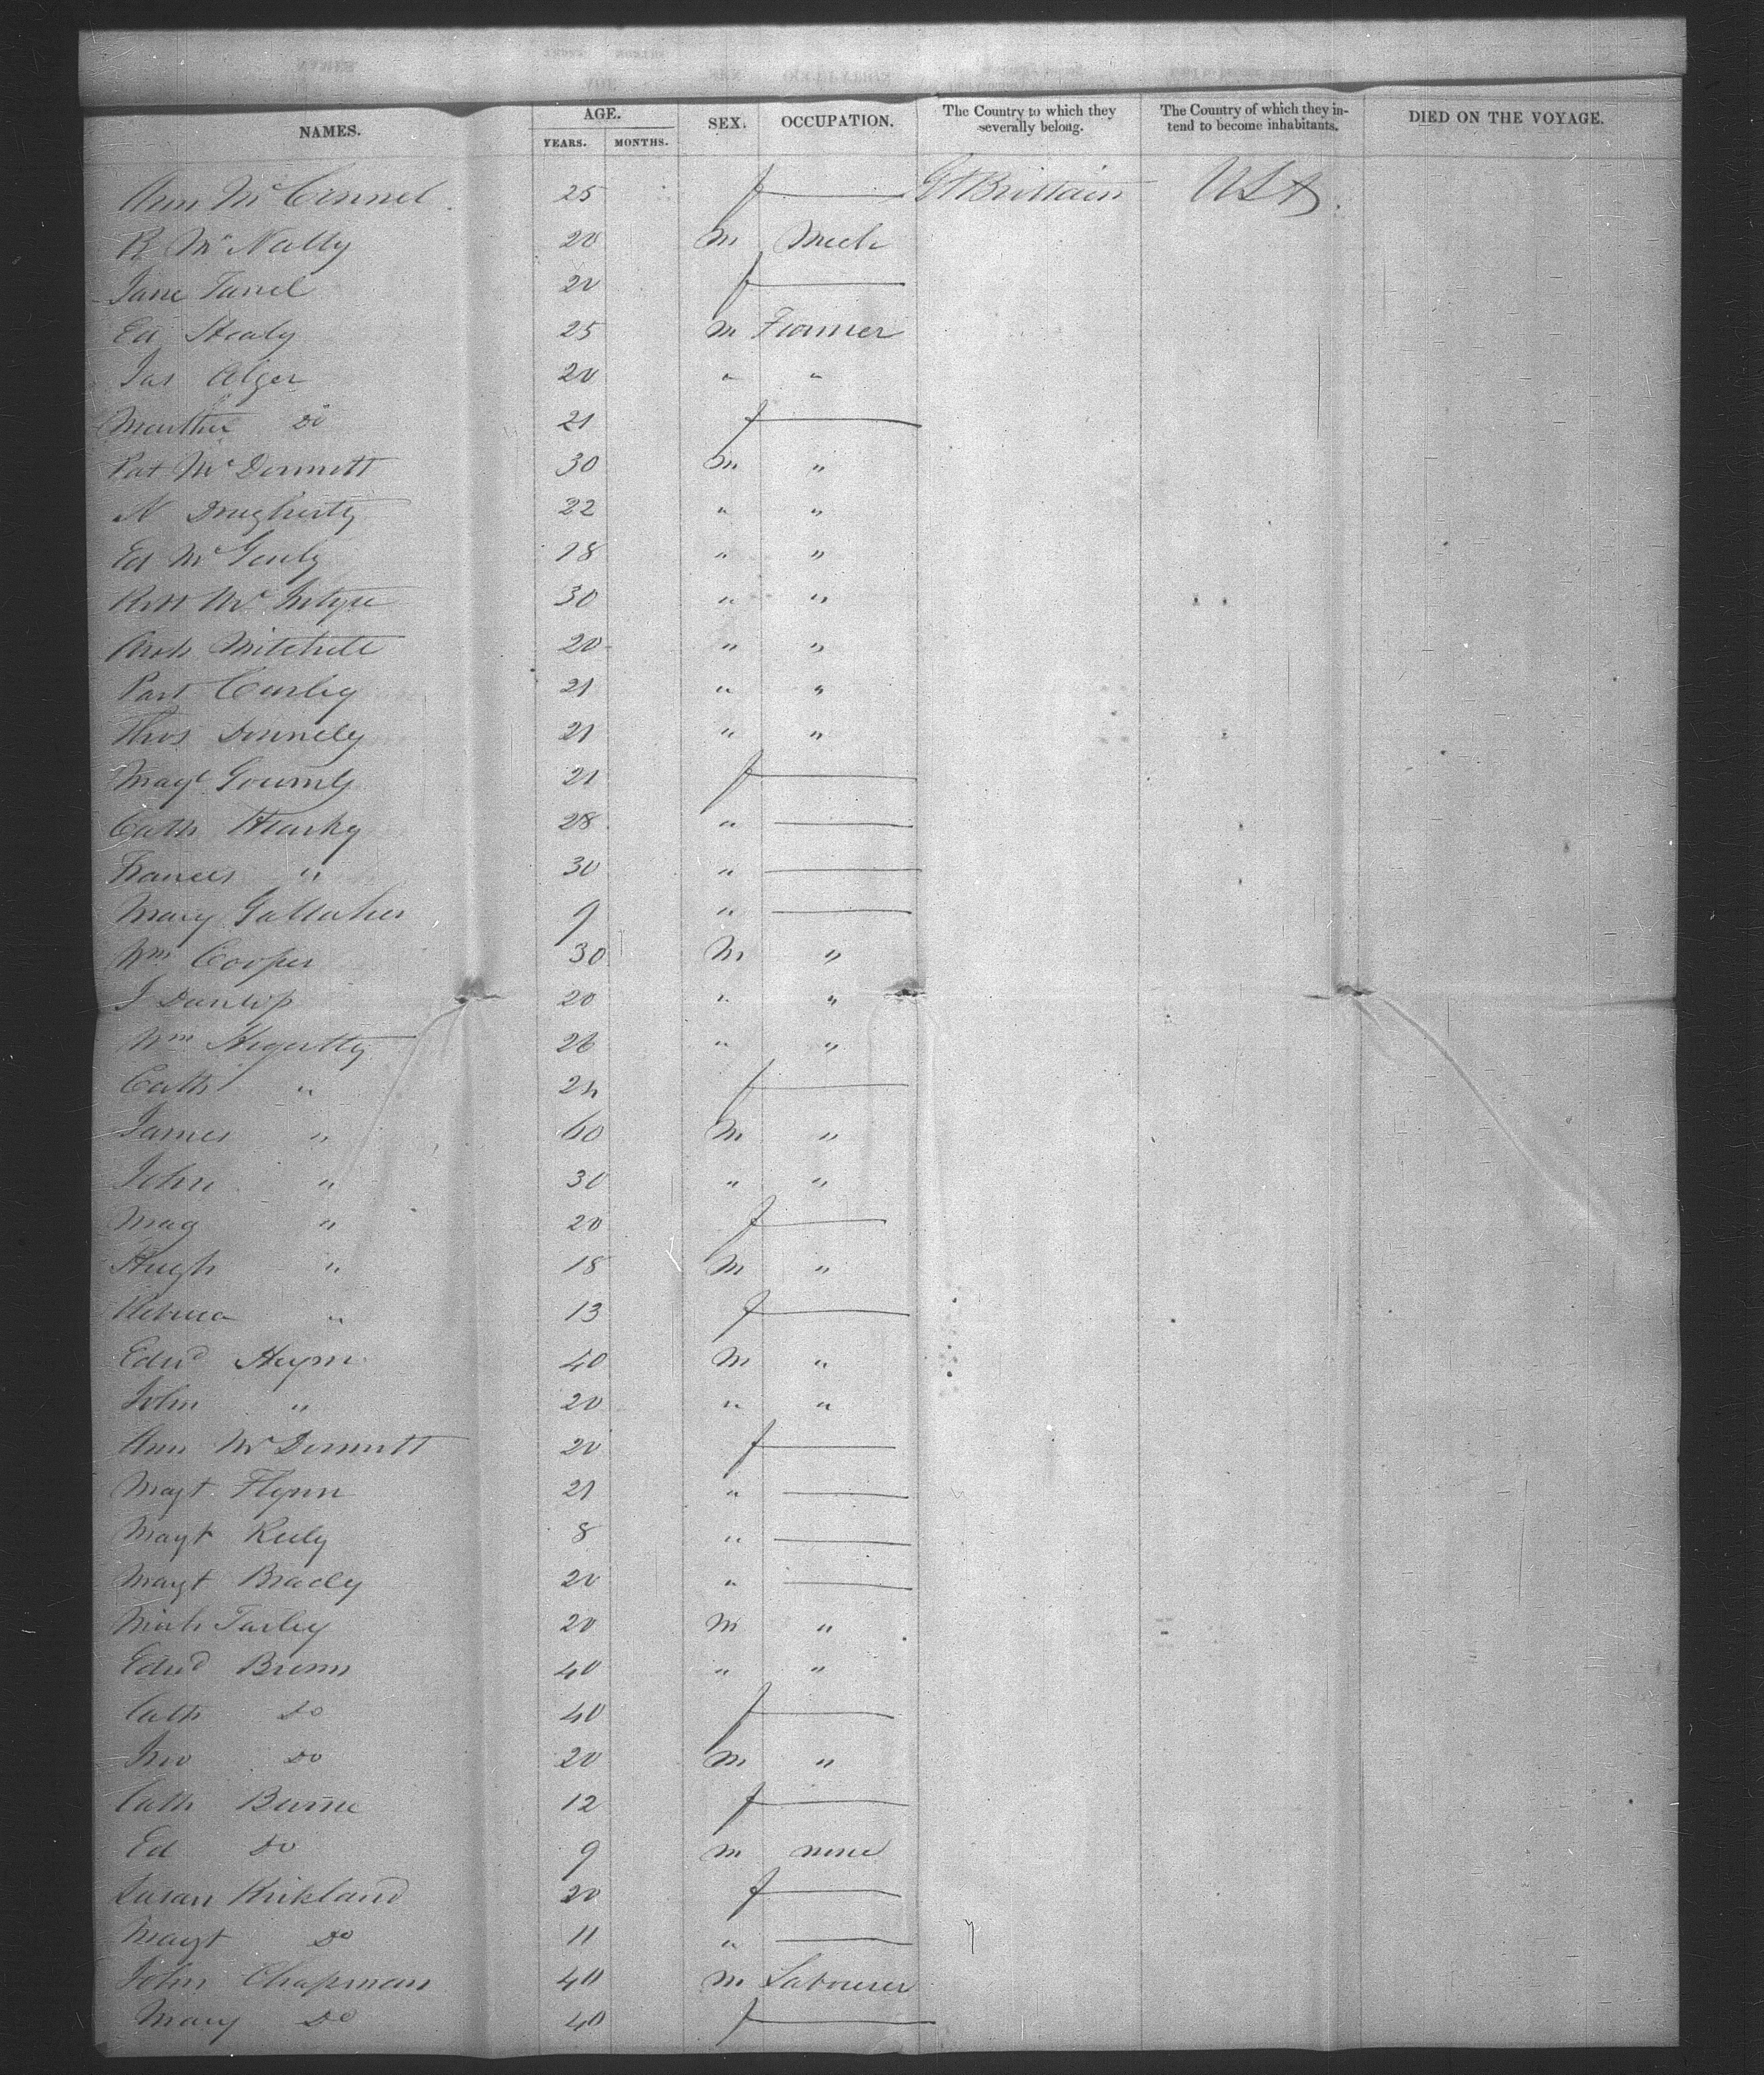 NAMES. AGE. YEARS. MONTHS. SEX. OCCUPATION. The Country to which they severally belong. The Country of which they intend to become inhabitants. DIED ON THE VOYAGE.
Ann Mc Connel 25 f — Gt Brittain USA
R Mc Nally 20 m Mech
Jane 20 f —
Ed Healy 25 m Farmer
Jas Alger 20 " "
Marther do 21 f —
Pat Mc Dermott 30 m "
N Dougherty 22 " "
Ed Mc 18 " "
Robt Mc Intyre 30 " "
Arch Mitchell 20 " "
Pat Curley 21 " "
Thos Donnely 21 " "
Magt Gourmly 21 f —
Cath 28 " —
Frances " 30 " —
Mary Gallaher 9 " —
Wm Cooper 30 m "
J Dunlop 20 " "
Wm Hegertty 26 " "
Cath " 24 f —
James " 60 m "
John " 30 " "
Mag " 20 f —
Hugh " 18 m "
Rebecca " 13 f —
Edwd 40 m "
John " 20 " "
Ann Mc Dermott 20 f —
Magt Flynn 21 " —
Magt Reily 8 " —
Magt Brady 20 " —
Mich Farley 20 m "
Edwd 40 " "
Cath do 40 f —
Jno do 20 m "
Cath Burne 12 f —
Ed do 9 m none
Susan Kirkland 20 f —
Magt do 11 " —
John Chapman 40 m Labourer
Mary do 40 f —